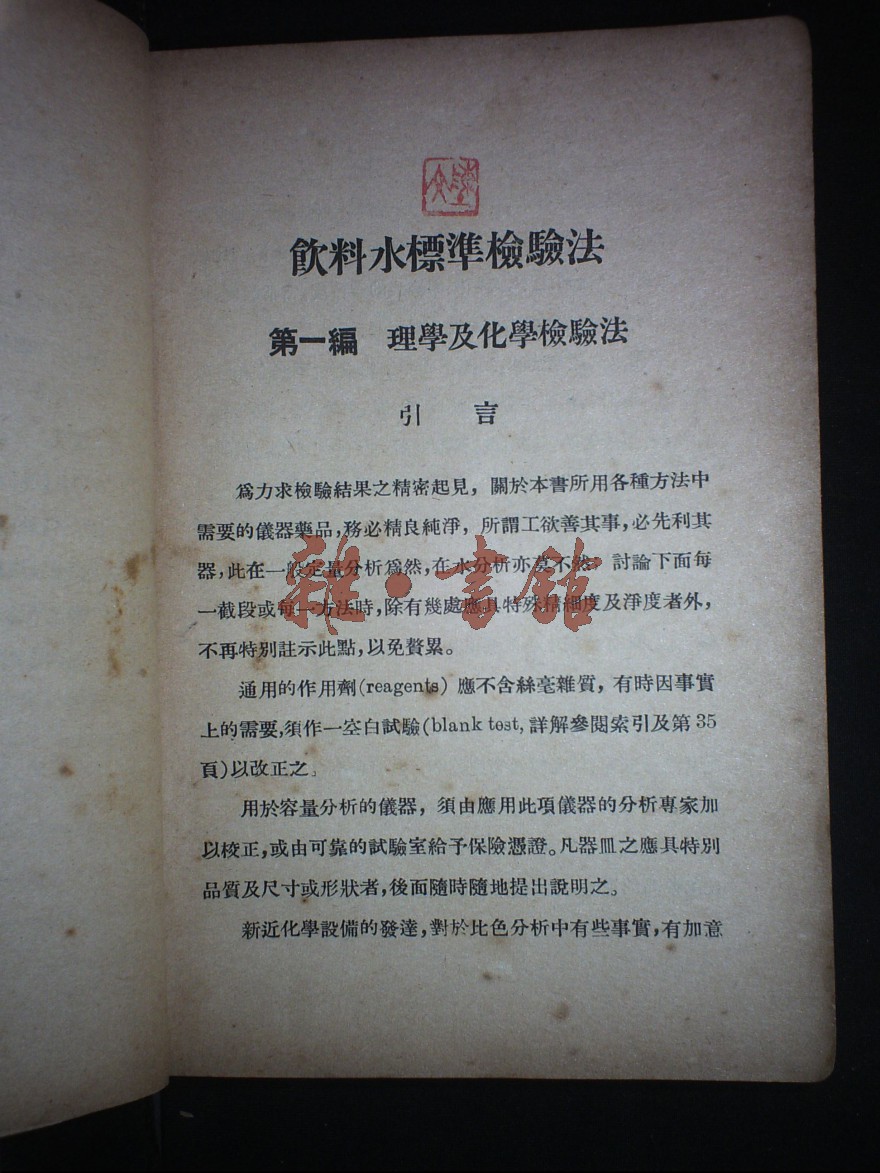 飲料水標準檢驗法
第一編 理學及化學檢驗法
引 言
爲力求檢驗結果之精密起見，關於本書所用各種方法中
需要的儀器藥品，務必精良純淨，所謂工欲善其事，必先利其
器，此在一般定量分析爲然，在水分析亦莫不然。討論下面每
一截段或每一方法時，除有幾處應具特殊精細度及淨度者外，
不再特別註示此點，以免贅累。
通用的作用劑(reagents)應不含絲毫雜質，有時因事實
上的需要，須作一空白試驗(blank test, 詳解參閱索引及第 35
頁)以改正之。
用於容量分析的儀器，須由應用此項儀器的分析專家加
以梭正，或由可靠的試驗室給予保險憑證。凡器皿之應具特別
品質及尺寸或形狀者，後面隨時隨地提出說明之。
新近化學設備的發達，對於比色分析中有些事實，有加意
雜·書館